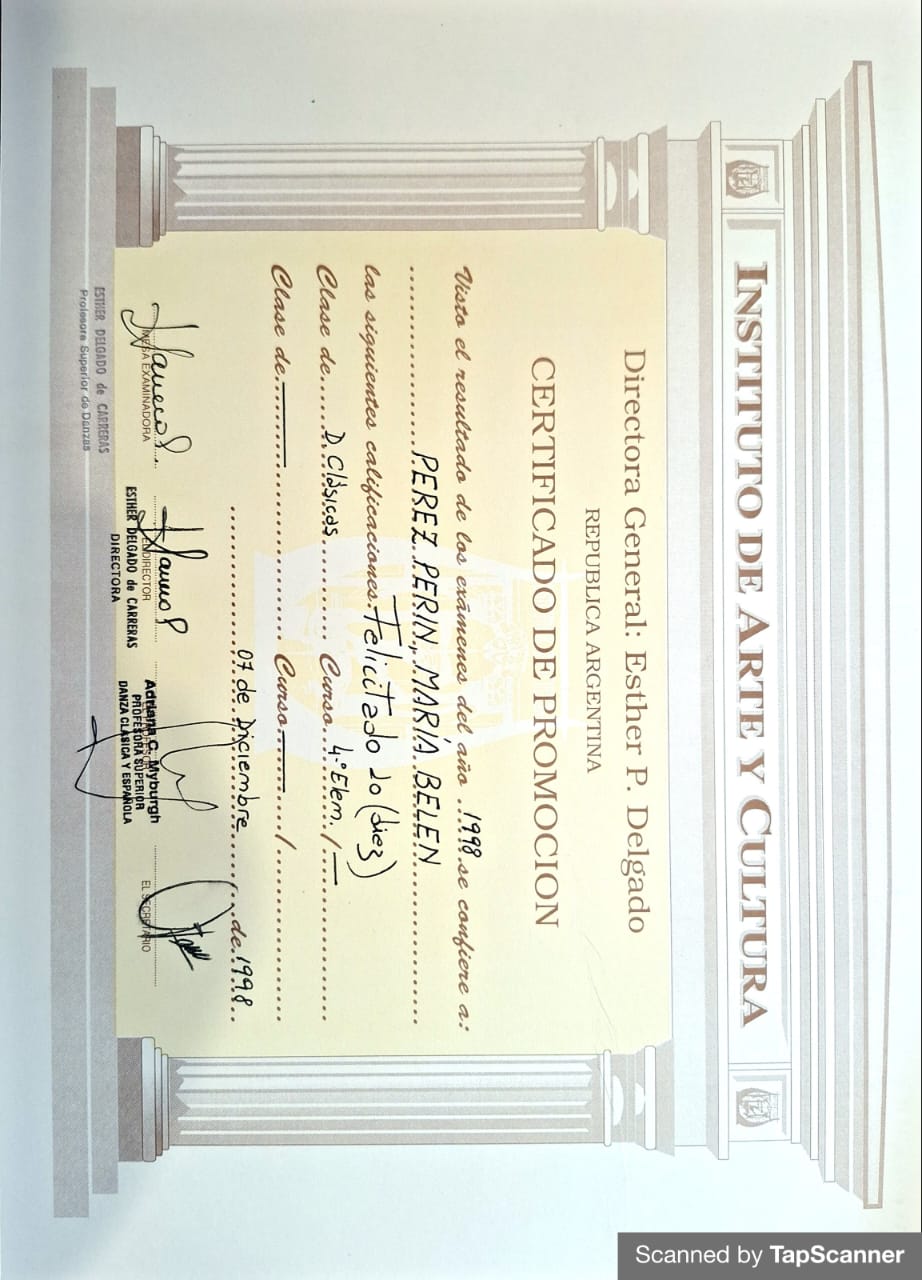 INSTITUTO DE ARTE Y CULTURA
Directora General: Esther P. Delgado
REPUBLICA ARGENTINA
CERTIFICADO DE PROMOCION
Visto el resultado de los exámenes del año ..1998.se confiere a:
PEREZ PERIN, MARÍA BELEN
las siguientes calificaciones: Felicitado 10 (diez)
Clase de.....D.Clásicas.......... Curso....4.° Elem. /—
Clase de — Curso — /
07 de Diciembre de 1998
MESA EXAMINADORA
DIRECTOR
EL SECRETARIO
ESTHER DELGADO de CARRERAS
Profesora Superior de Danzas
ESTHER DELGADO de CARRERAS
DIRECTORA
Adriana C. Myburgh
PROFESORA SUPERIOR
DANZA CLASICA Y ESPAÑOLA
Scanned by TapScanner